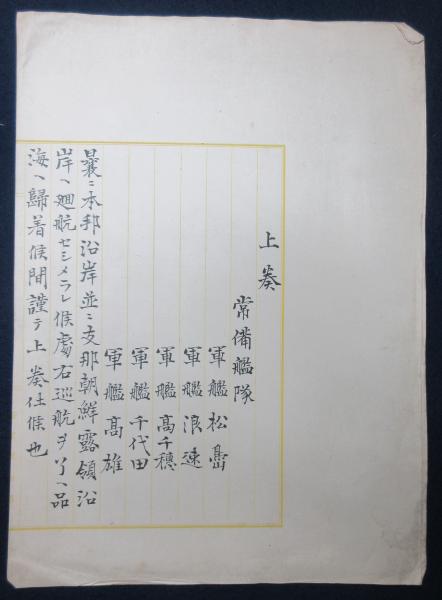 上奏
常備艦隊
軍艦松島
軍艦浪速
軍艦高千穗
軍艦千代田
軍艦高雄
曩ニ本邦沿岸並ニ支那朝鮮露領沿
岸ヘ廻航セシメラレ候處右巡航ヲ了ヘ品
海ヘ歸着候間謹テ上奏仕候也